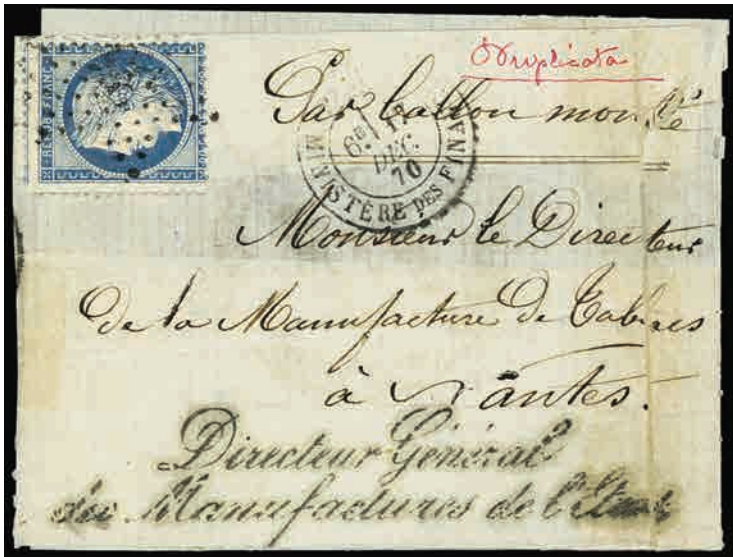 Duplicata
Par ballon monté
REPUB FRANC
6E
DEC.
70
MINISTÈRE DES FINA
Monsieur le Directeur
de la Manufacture de Tabacs
à Nantes.
Directeur Général
des Manufactures de l'Etat